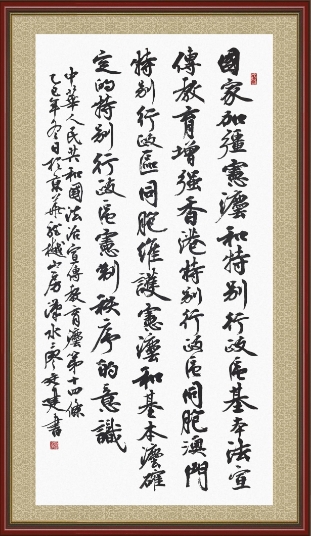 國家加彊憲灋和特别行政區基本法宣
傳教育增强香港特别行政區同胞澳門
特别行政區同胞維護憲灋和基本灋確
定的特别行政區憲制秩序的意識
中華人民共和國法治宣傳教育灋第十四條
乙巳年冬日於京華龍樾山房漢水廖建書